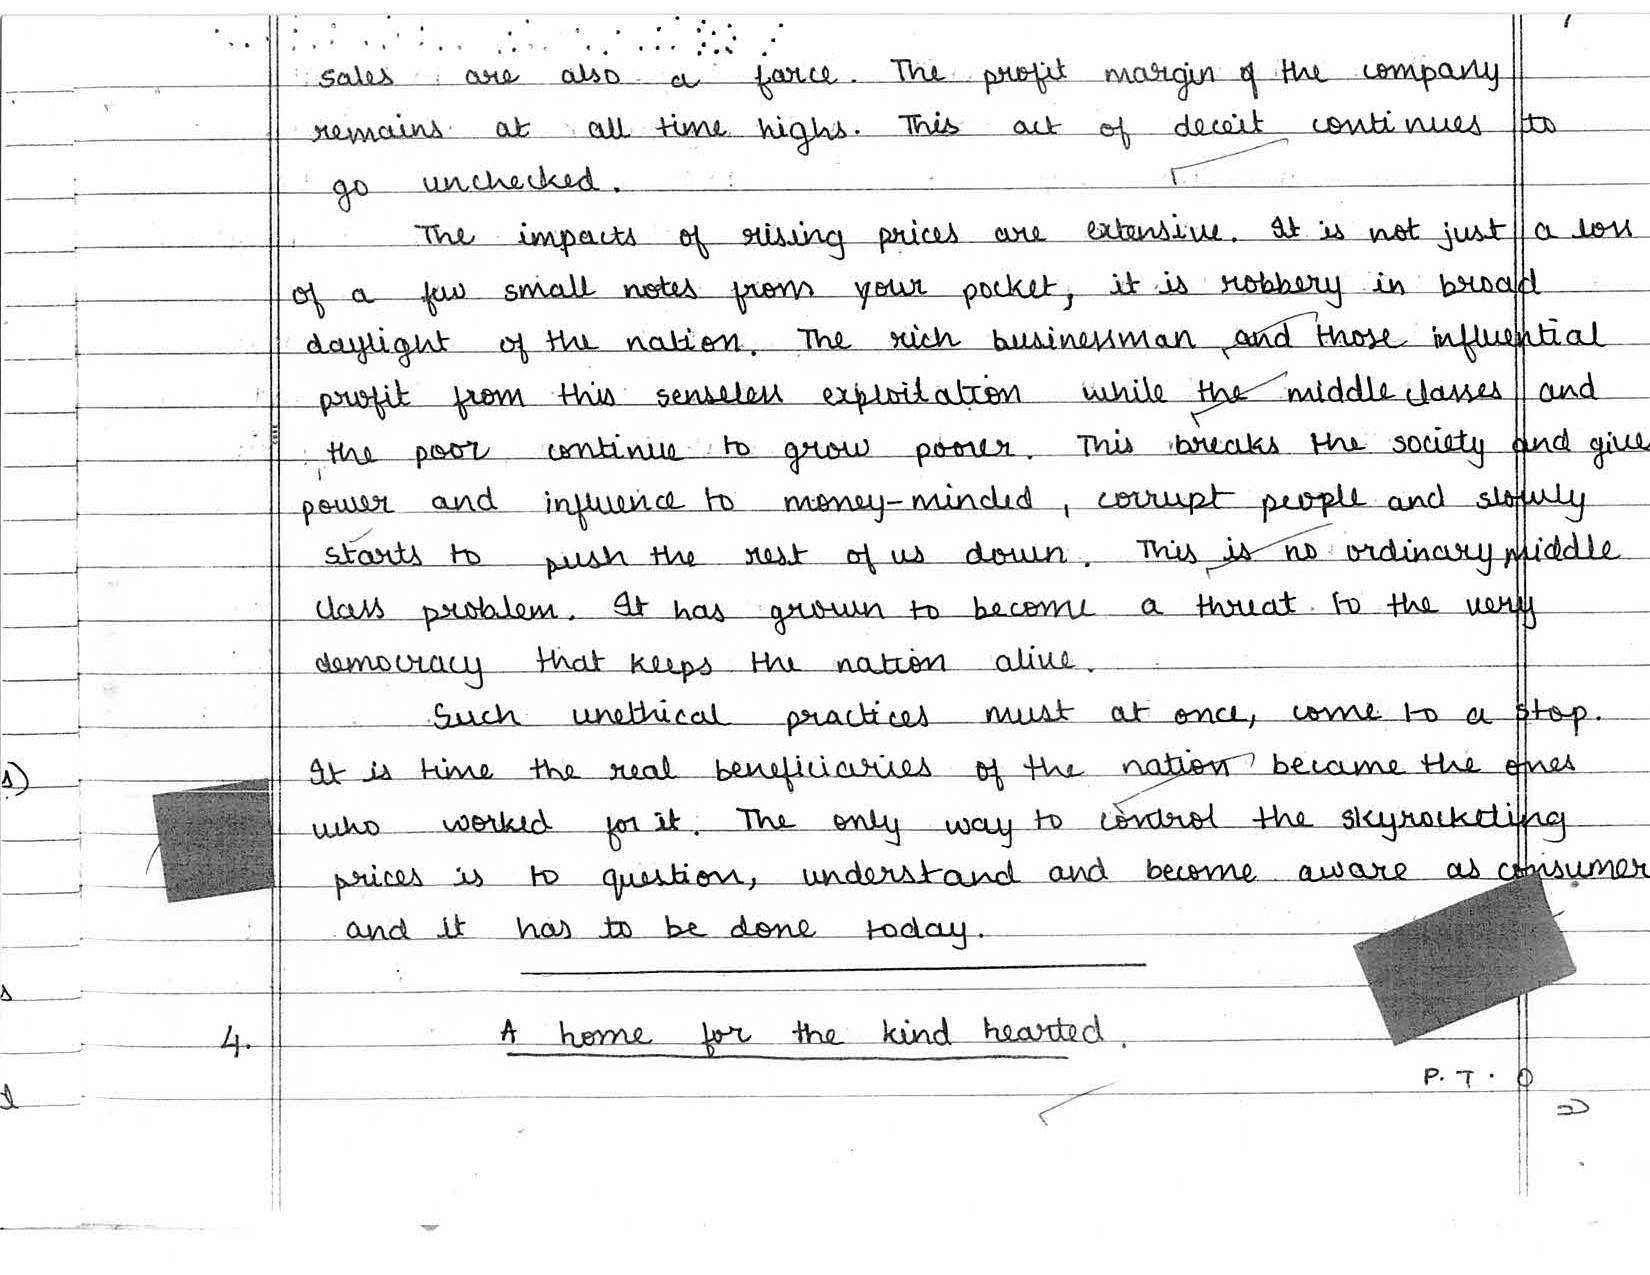 sales are also a farce. The profit margin of the company
remains at all time highs. This act of deceit continues to
go unchecked.
The impacts of rising prices are extensive. It is not just a loss
of a few small notes from your pocket, it is robbery in broad
daylight of the nation. The rich businessman and those influential
profit from this senseless exploitation while the middle classes and
the poor continue to grow poorer. This breaks the society and give
power and influence to money-minded, corrupt people and slowly
starts to push the rest of us down. This is no ordinary middle
class problem. It has grown to become a threat to the very
democracy that keeps the nation alive.
Such unethical practices must at once, come to a stop.
It is time the real beneficiaries of the nation became the ones
who worked for it. The only way to control the skyrocketing
prices is to question, understand and become aware as consumer
and it has to be done today.
4. A home for the kind hearted.
P.T.O